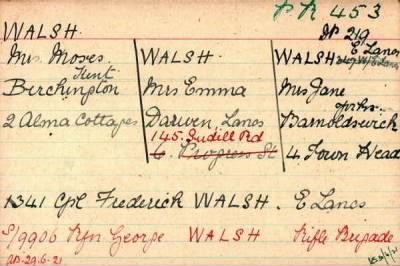 PR 453
WALSH.
Mrs. Moses.
Kent
Birchington
2 Alma Cottages
WALSH.
Mrs Emma
Darwen, Lancs
145. Sudell Rd
6. Progress St
JP 219
E Lancs
WALSH
Mrs Jane
Yorks.
Barnoldswick
4. Town Head
1341 Cpl Frederick WALSH. E Lancs
S/9906 Rfn George WALSH Rifle Brigade
AP.29.6.21